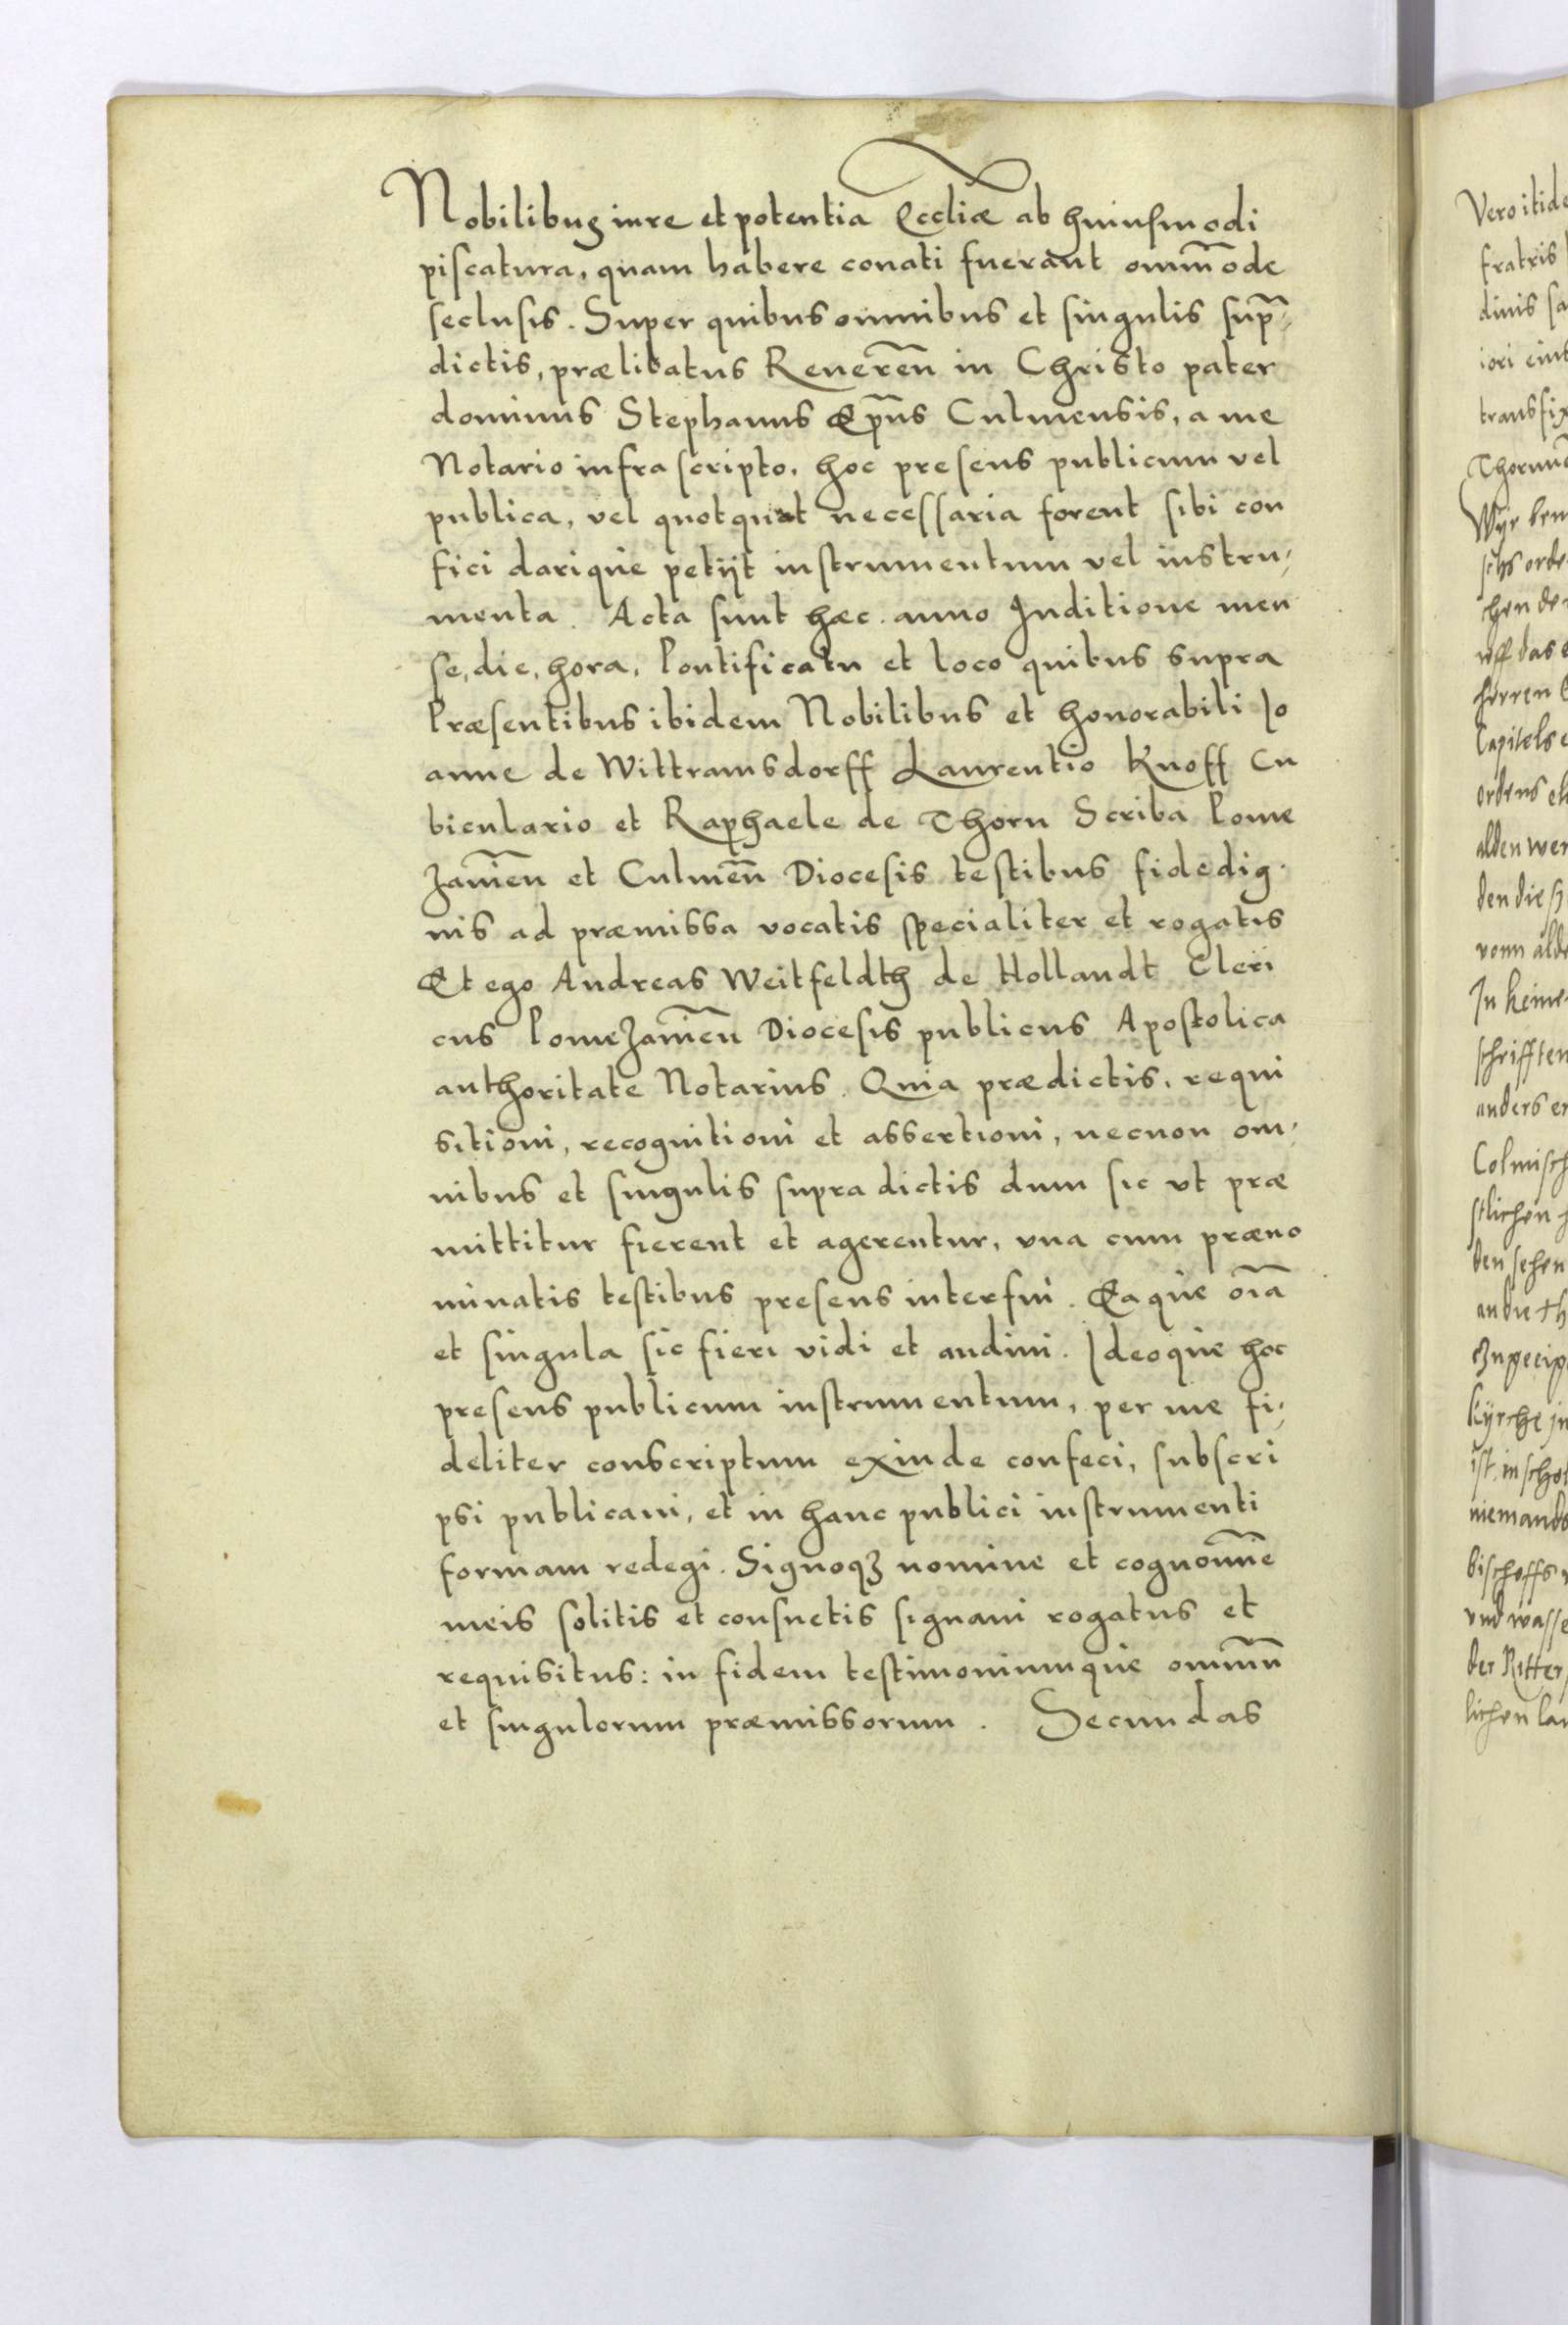 Nobilibus iure et potentia Eccliæ ab huiusmodi
piscatura, quam habere conati fuerant omm̄ode
seclusis. Super quibus omnibus et singulis sup̄,
dictis, prælibatus Reueren̄ in Christo pater
dominus Stephanus Ep̄us Culmensis, a me
Notario infra scripto, hoc presens publicum vel
publica, vel quotquot necessaria forent sibi con
fici darique petijt instrumentum vel instru,
menta. Acta sunt hæc anno Inditione men
se, die, hora, Pontificatu et loco quibus supra
Præsentibus ibidem Nobilibus et honorabili Jo
anne de Wittramsdorff Laurentio Knoff Cu
biculario et Raphaele de Thorn Scriba Pome
zanien̄ et Culmen̄ Diocesis testibus fidedig
nis ad præmissa vocatis specialiter et rogatis
Et ego Andreas Weitfeldth de Hollandt Cleri
cus Pomezanien̄ Diocesis publicus Apostolica
authoritate Notarius. Quia prædictis, requi
sitioni, recognitioni et assertioni, necnon om,
nibus et singulis supra dictis dum sic vt præ
mittitur fierent et agerentur, vna cum præno
minatis testibus presens interfui. Eaque oı̄a
et singula sic fieri vidi et audiui. Ideoque hoc
presens publicum instrumentum, per me fi,
deliter conscriptum exinde confeci, subscri
psi publicaui, et in hanc publici instrumenti
formam redegi. Signoqꝫ nomine et cognomı̄e
meis solitis et consuetis signaui rogatus et
requisitus: in fidem testimoniumque omniū
et singulorum præmissorum. Secundas
Vero itide
fratris
dinis sa
iori eius
transfix
Wyr
orde
uff das
herren
Capitels
ordens
alden wer
den die
vonn alde
In keine
schrifften
anders er
Colmisch
stlichen
den sehen
Kyrche
ist, in
niemands
bischoffs
vnd wasse
der Ritter
lichen lan